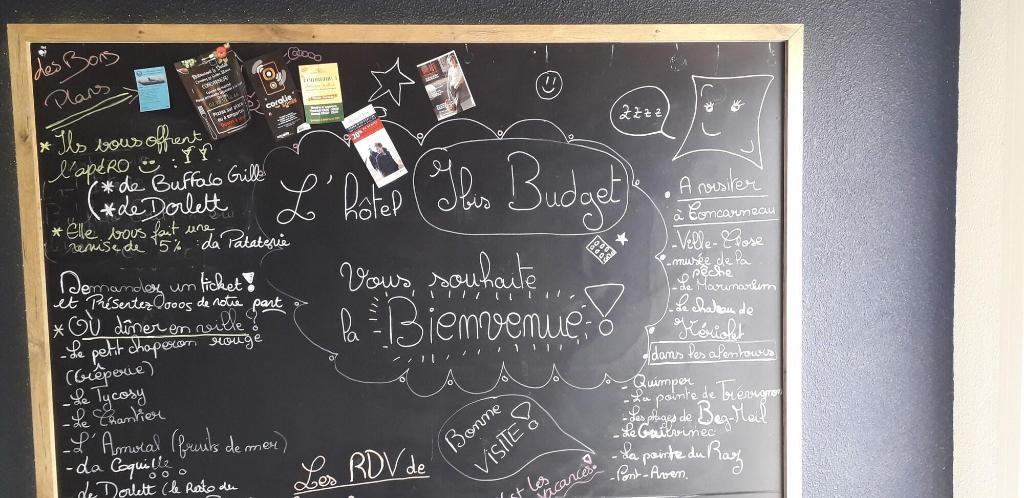 des Bons
Plans
* Ils vous offrent
l'apéRO :
(* de Buffalo Grille
(* de Dorlett
* Elle vous fait une
remise de 5% : La Pataterie
Demander un ticket !
et Présentez-vous de notre part
* OÙ dîner en ville ?
- Le petit chaperon rouge
(Crêperie)
- Le Tycosy
- Le Chantier
- L'Amiral (fruits de mer)
- La Coquille
- de Dorlett (le Resto du
coralie
L'hôtel Ibis Budget
Vous souhaite
la Bienvenue !
Bonne
VISITE !
Les RDV de
est les
vacances!
zzzz
A visiter
à Concarneau
- Ville-Close
- musée de la
pêche
- Le Marinarium
- Le chateau de
Kériolet
dans les alentours
- Quimper
- La pointe de Trévignon
- Les plages de Beg-Meil
- Le Guilvinec
- La pointe du Raz
- Pont-Aven.